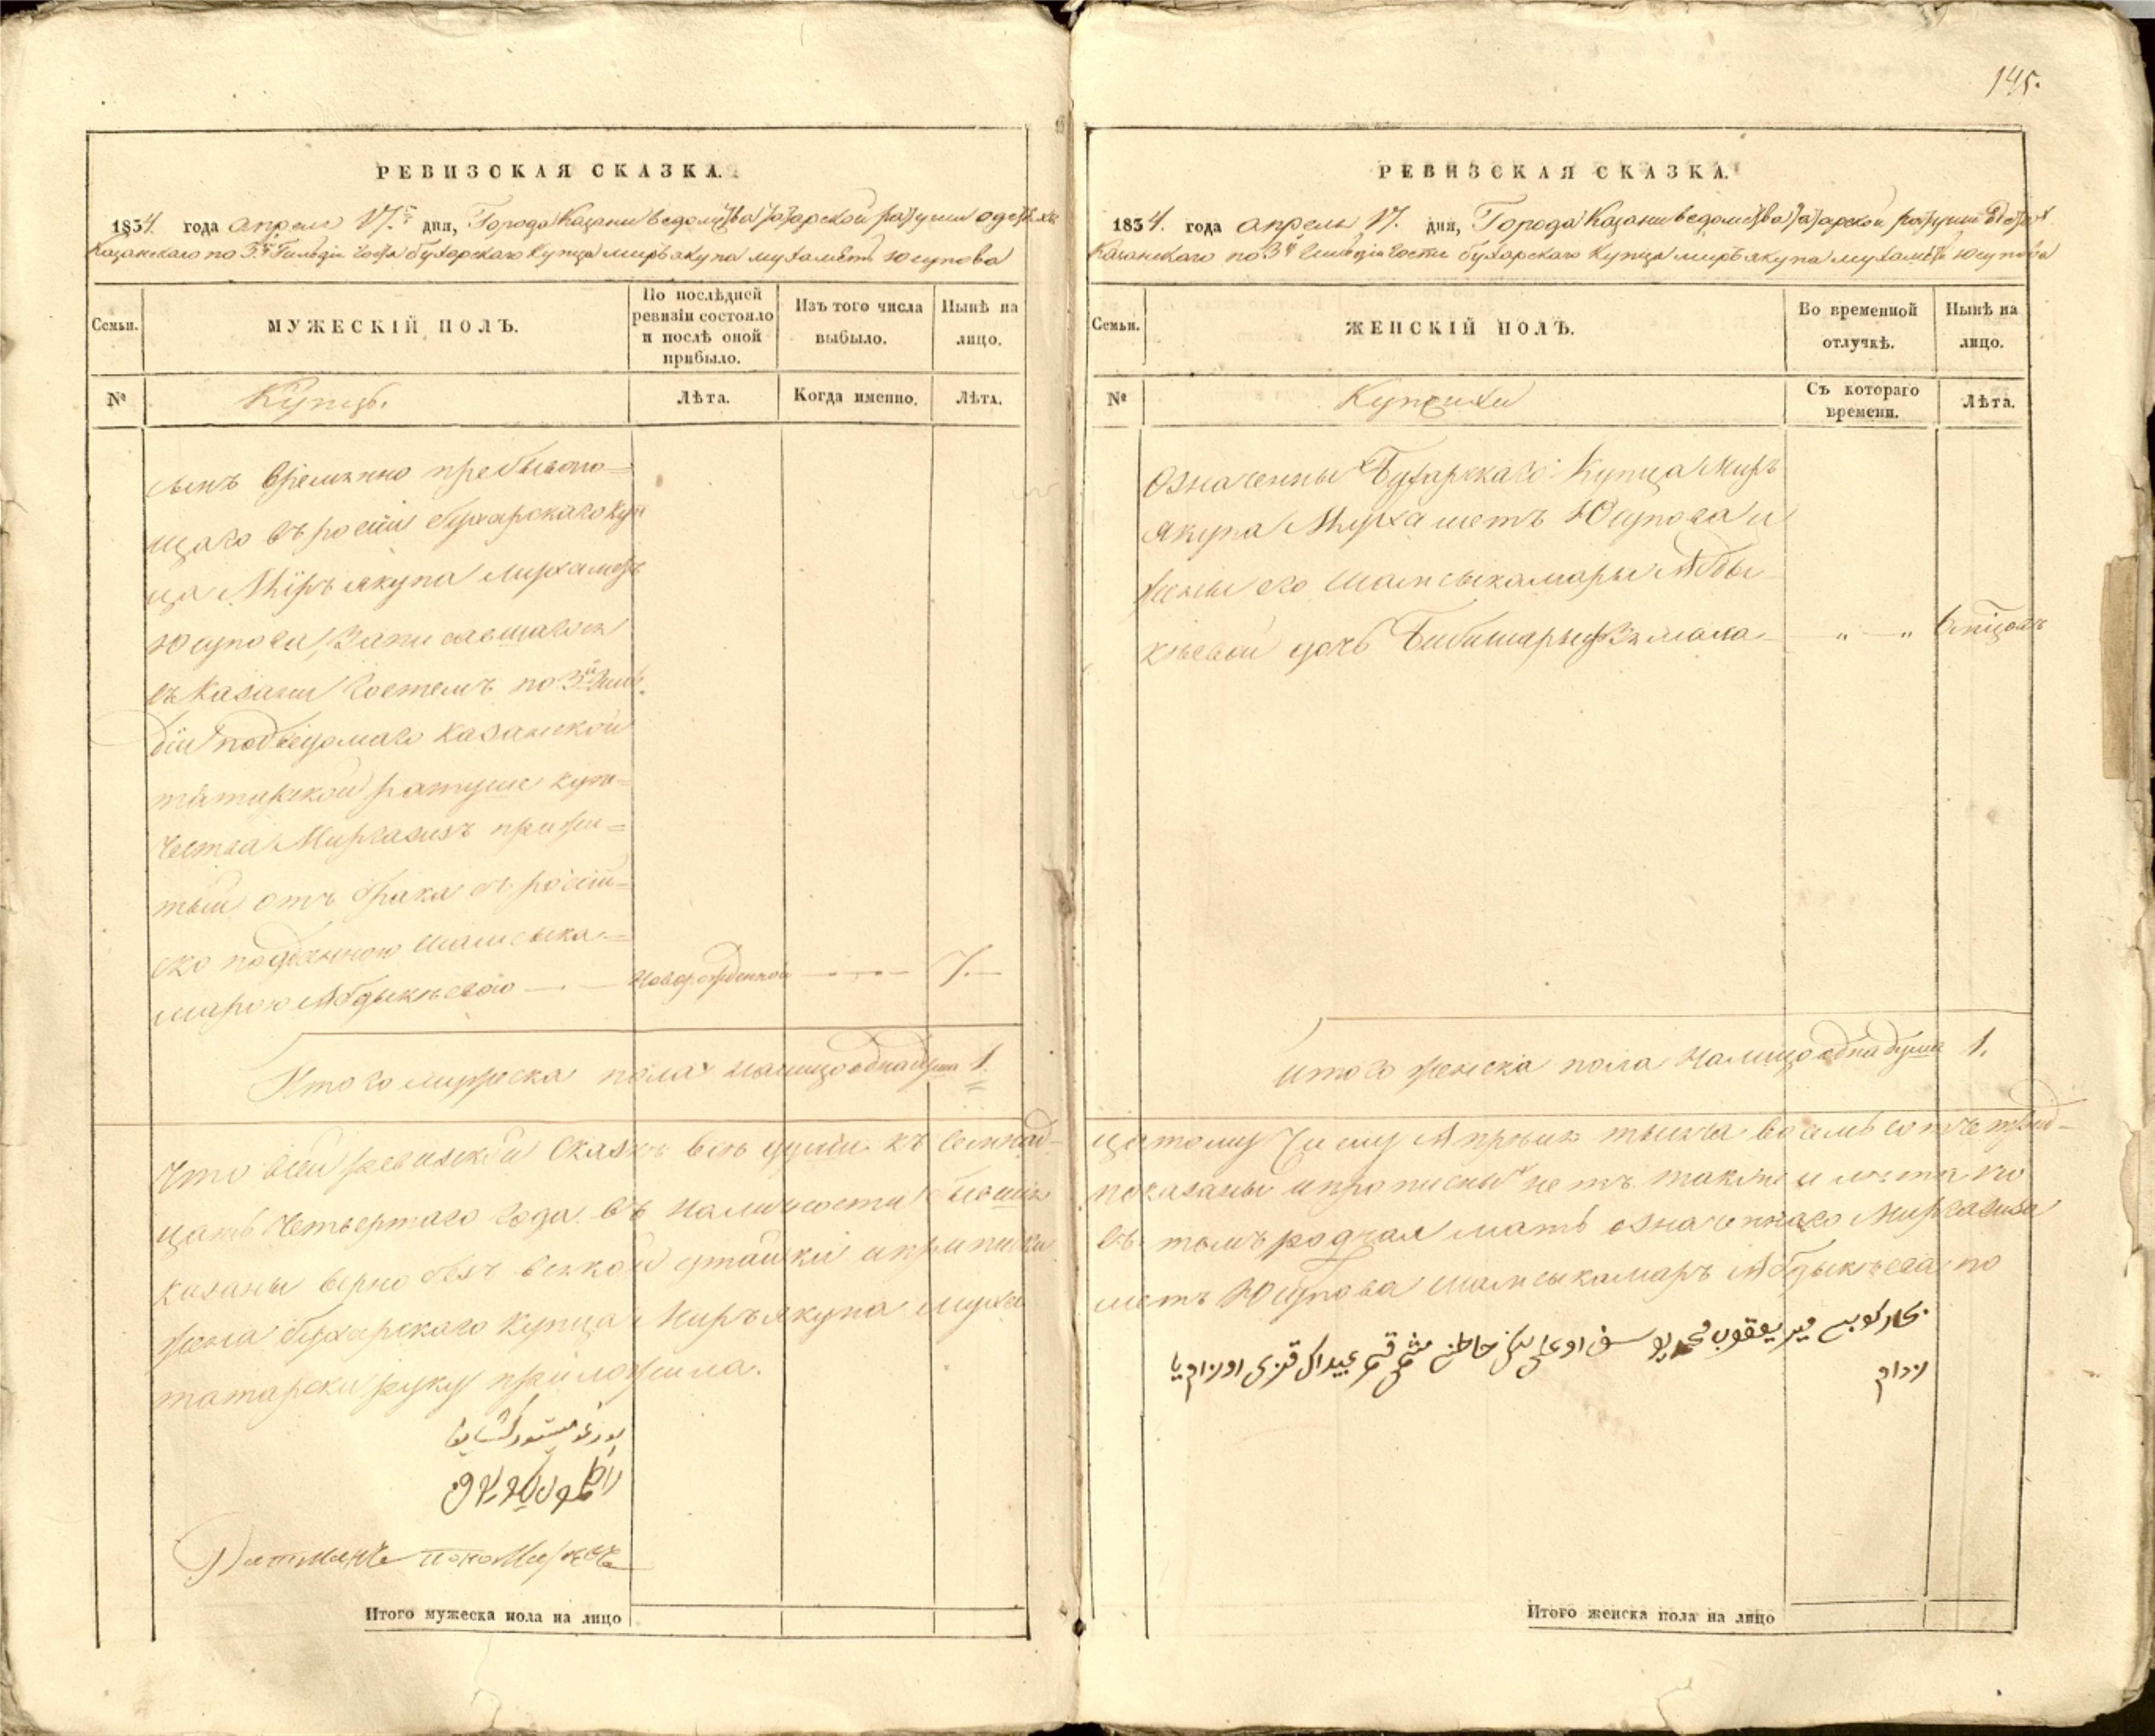 РЕВИЗСКАЯ СКАЗКА.
1834. года апреля 17.го дня, Города Казани ведомства татарской ратуши о детях
Казанскаго по 3.й Гильдіи гостя бухарскаго купца миръякупа мухаметъ Юсупова
Семьи.
МУЖЕСКІЙ ПОЛЪ.
По послѣдней ревизіи состояло и послѣ оной прибыло.
Изъ того числа выбыло.
Нынѣ на лицо.
№
Купцъ.
Лѣта.
Когда именно.
Лѣта.
сынъ временно пребываю=
щаго въ росіи бухарскаго куп
ца Миръ якупа мухаметъ
Юсупова, Записавшагося
въ Казани гостемъ по 3й Гиль
діи подведомаго казанской
татарской ратуше купе=
чества Миргазизъ прижи=
тый отъ брака съ росій=
ско подданною шамсыка=
марою Абдыкѣевою — новорожденной — 7. —
Итого мужеска пола налицо одна душа 1.
Что в сей ревизской сказкѣ всѣ души къ семнад-
цать четвертаго года въ наличности бывшія
казаны верно безъ всякой утайки и приписки
жена бухарскаго купца Миръ якупа муха
татарски руку приложила.
Ратманъ
Итого мужеска пола на лицо
145.
РЕВИЗСКАЯ СКАЗКА.
1834. года апреля 17. дня, Города Казани ведомства татарской ратуши о детях
Казанскаго по 3й Гильдіи гостя бухарскаго купца миръ якупа мухаметъ Юсупова
Семьи.
ЖЕНСКІЙ ПОЛЪ.
Во временной отлучкѣ.
Нынѣ на лицо.
№
Купчихи
Съ котораго времени.
Лѣта.
Означенных Бухарскаго Купца Миръ
якупа Мухаметъ Юсупова и
жены его шамсыкамары Абды
кѣевой дочь Бибишарыфзямала — " — "
итого женска пола налицо одна душа 1.
цатому числу Апрѣля тысяча восемь сотъ трид-
показаны и прописных нетъ также и лѣта по
въ томъ родная мать означеннаго Миргазиза
метъ Юсупова шамсыкамаръ Абдыкѣева по
میر یعقوب محمد یوسف اوغلی خاطنی قزی
Итого женска пола на лицо